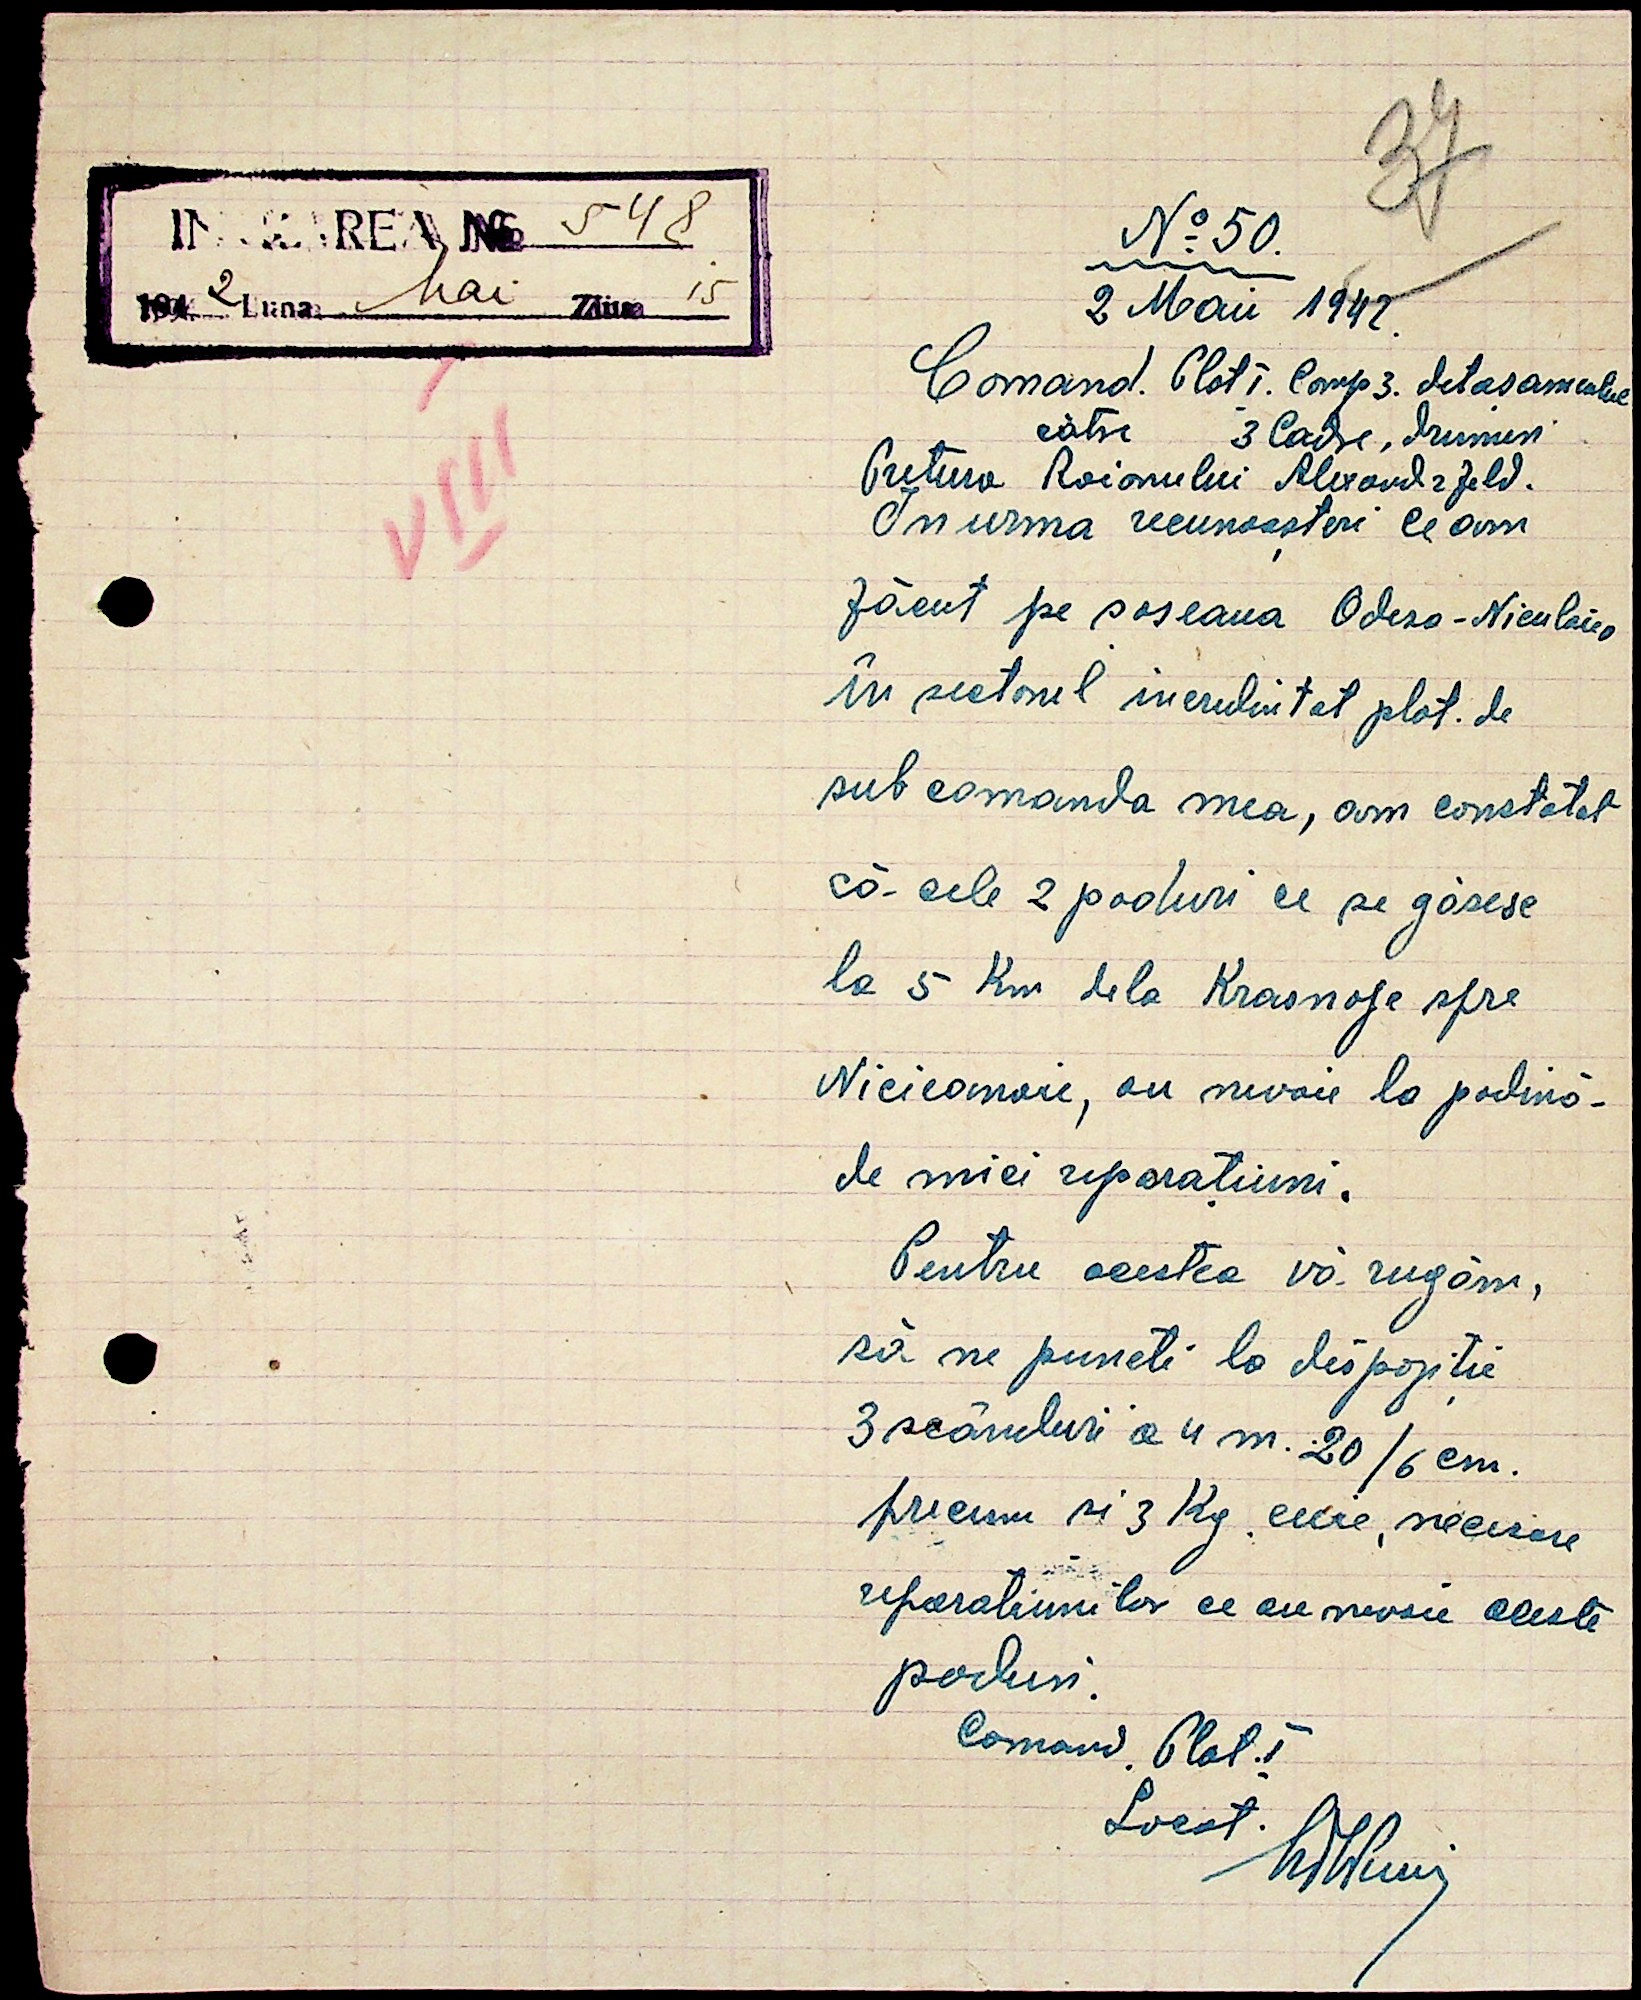 37
INTRAREA № 548
194 2 Luna Mai Ziua 15
VIII
№ 50.
2 Maiu 1942.
Comand. Plot I. Comp 3. detasamentul
cātre 3 Cadre, drumuri
Pretura Raionului Alexandrfeld.
În urma recunoașteri ce am
făcut pe soseaua Odesa - Niculaieo
în sectorul incredintat plot. de
sub comanda mea, am constatat
că cele 2 poduri ce se găsesc
la 5 Km dela Krasnoje spre
au nevoie la podină
de mici reparațiuni.
Pentru acestea vă rugăm,
să ne puneti la dispoziție
3 scânduri a 4 m. 20/6 cm.
precum si 3 Kg. cuie, necesare
reparatiunilor ce au nevoie aceste
poduri.
Comand. Plot. I
Locot.